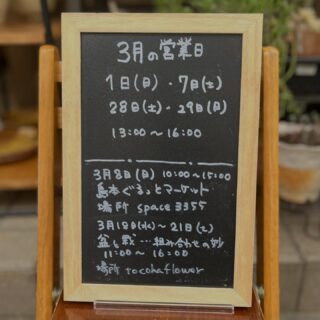 3月の営業日
1日(日)・7日(土)
28日(土)・29日(日)
13:00〜16:00
3月8日(日) 10:00〜15:00
島本ぐるっとマーケット
場所 space 3355
3月18日(水)〜21日(土)
盆と栽…組み合わせの妙
11:00〜16:00
場所 tocohaflower